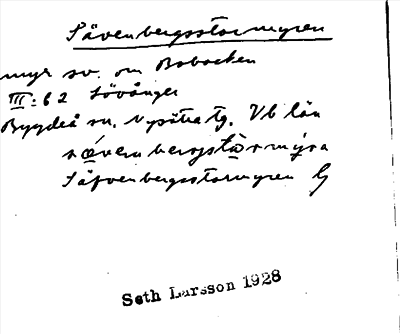 Sävenbergsstormyren
myr sv. om Bobacken
III:62 Lövånger
Bygdeå sn. Nysätra tg. Vb län
sævembærgstormyra
Säfvenbergsstormyren G
Seth Larsson 1928